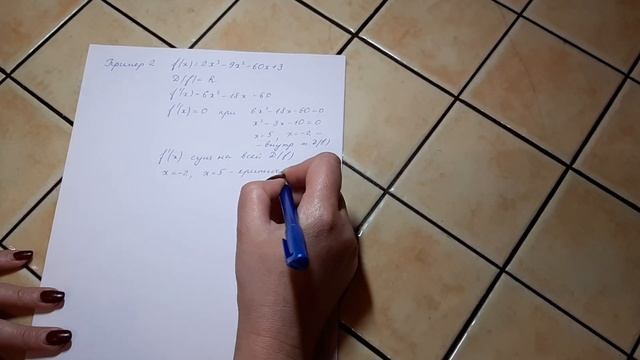 Пример 2 f(x)=2x³-9x²-60x+3
D(f)=R
f'(x)=6x²-18x-60
f'(x)=0 при 6x²-18x-60=0
x²-3x-10=0
x=5, x=-2, -
- внутр т D(f)
f'(x) сущ на всей D(f)
x=-2, x=5 - критич